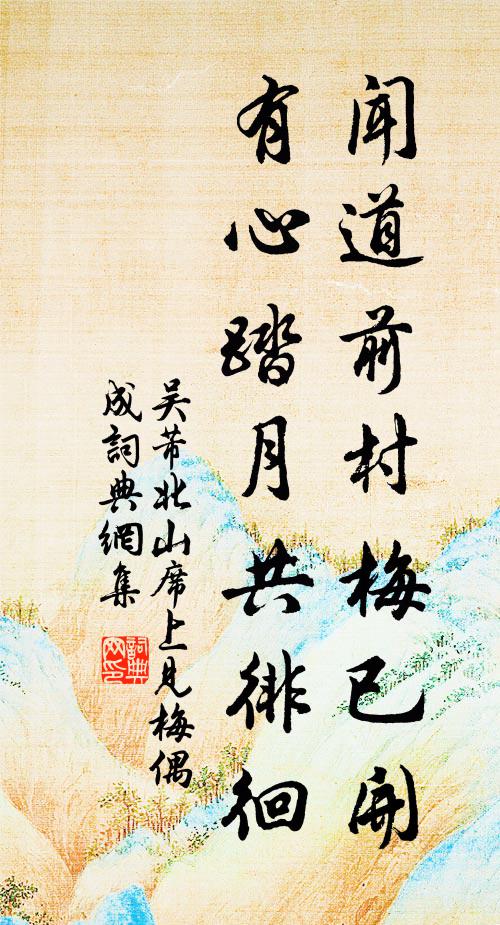 聞道前村梅已開
有心踏月共徘徊
吴芾北山席上見梅偶
成詞典網集
詞典
网印